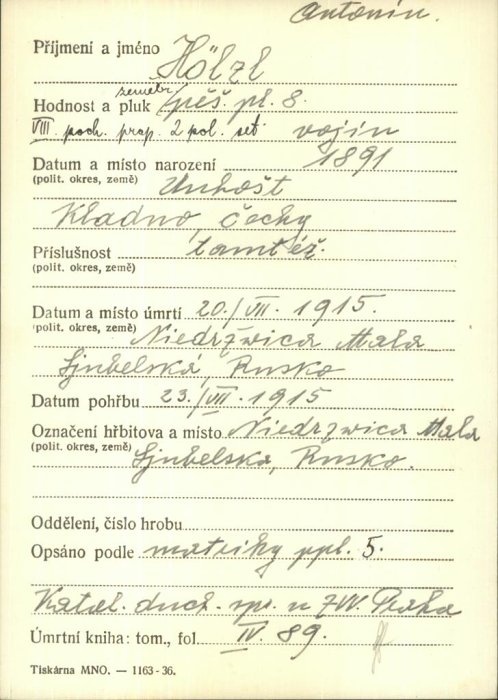 Antonín.
Příjmení a jméno Hölzl
zeměbr.
Hodnost a pluk pěš. pl. 8.
VIII. poch. prap. 2 pol. set vojín
Datum a místo narození 1891
(polit. okres, země) Unhošt
Kladno, Čechy
Příslušnost tamtéž.
(polit. okres, země)
Datum a místo úmrtí 20./VII. 1915.
(polit. okres, země) Niedrzwica Mala
Ljubelská, Rusko
Datum pohřbu 23./VII. 1915
Označení hřbitova a místo Niedrzwica Mala
(polit. okres, země) Ljubelska, Rusko.
Oddělení, číslo hrobu
Opsáno podle matriky ppl. 5.
Katol. duch. spr. u ZVV. Praha
Úmrtní kniha: tom., fol. IV. 89.
Tiskárna MNO. — 1163-36.